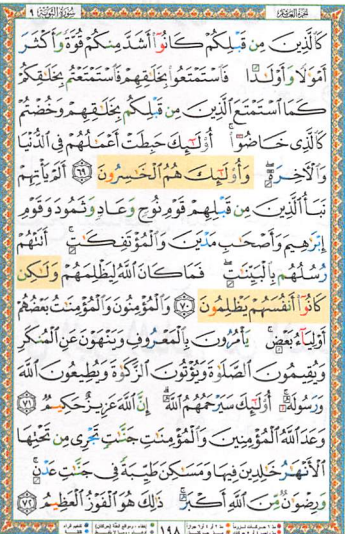 الجزء العاشر سورة التوبة ٩
كَالَّذِينَ مِن قَبْلِكُمْ كَانُوٓا۟ أَشَدَّ مِنكُمْ قُوَّةً وَأَكْثَرَ
أَمْوَٰلًا وَأَوْلَٰدًا فَٱسْتَمْتَعُوا۟ بِخَلَٰقِهِمْ فَٱسْتَمْتَعْتُم بِخَلَٰقِكُمْ
كَمَا ٱسْتَمْتَعَ ٱلَّذِينَ مِن قَبْلِكُم بِخَلَٰقِهِمْ وَخُضْتُمْ
كَٱلَّذِى خَاضُوٓا۟ أُو۟لَٰٓئِكَ حَبِطَتْ أَعْمَٰلُهُمْ فِى ٱلدُّنْيَا
وَٱلْءَاخِرَةِ وَأُو۟لَٰٓئِكَ هُمُ ٱلْخَٰسِرُونَ ٦٩ أَلَمْ يَأْتِهِمْ
نَبَأُ ٱلَّذِينَ مِن قَبْلِهِمْ قَوْمِ نُوحٍ وَعَادٍ وَثَمُودَ وَقَوْمِ
إِبْرَٰهِيمَ وَأَصْحَٰبِ مَدْيَنَ وَٱلْمُؤْتَفِكَٰتِ أَتَتْهُمْ
رُسُلُهُم بِٱلْبَيِّنَٰتِ فَمَا كَانَ ٱللَّهُ لِيَظْلِمَهُمْ وَلَٰكِن
كَانُوٓا۟ أَنفُسَهُمْ يَظْلِمُونَ ٧٠ وَٱلْمُؤْمِنُونَ وَٱلْمُؤْمِنَٰتُ بَعْضُهُمْ
أَوْلِيَآءُ بَعْضٍ يَأْمُرُونَ بِٱلْمَعْرُوفِ وَيَنْهَوْنَ عَنِ ٱلْمُنكَرِ
وَيُقِيمُونَ ٱلصَّلَوٰةَ وَيُؤْتُونَ ٱلزَّكَوٰةَ وَيُطِيعُونَ ٱللَّهَ
وَرَسُولَهُۥٓ أُو۟لَٰٓئِكَ سَيَرْحَمُهُمُ ٱللَّهُ إِنَّ ٱللَّهَ عَزِيزٌ حَكِيمٌ ٧١
وَعَدَ ٱللَّهُ ٱلْمُؤْمِنِينَ وَٱلْمُؤْمِنَٰتِ جَنَّٰتٍ تَجْرِى مِن تَحْتِهَا
ٱلْأَنْهَٰرُ خَٰلِدِينَ فِيهَا وَمَسَٰكِنَ طَيِّبَةً فِى جَنَّٰتِ عَدْنٍ
وَرِضْوَٰنٌ مِّنَ ٱللَّهِ أَكْبَرُ ذَٰلِكَ هُوَ ٱلْفَوْزُ ٱلْعَظِيمُ ٧٢
١٩٨